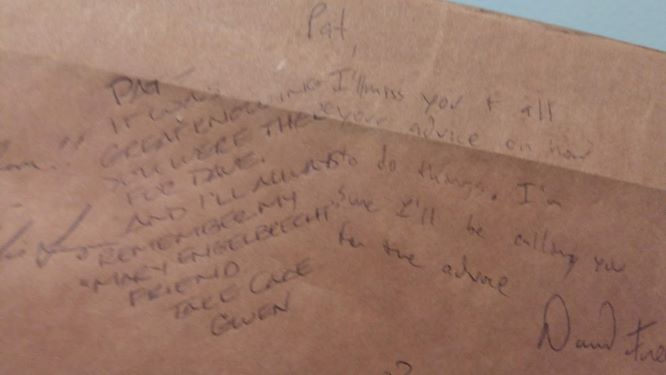 Pat,
I'll miss you & all
your advice on how
to do things. I'm
sure I'll be calling you
for the advice
David
PAT —
IT
GREAT KNOWING
YOU WERE THERE
FOR DAVE.
AND I'LL ALWAYS
REMEMBER MY
"MARY ENGELBREIGHT"
FRIEND
TAKE CARE
GWEN